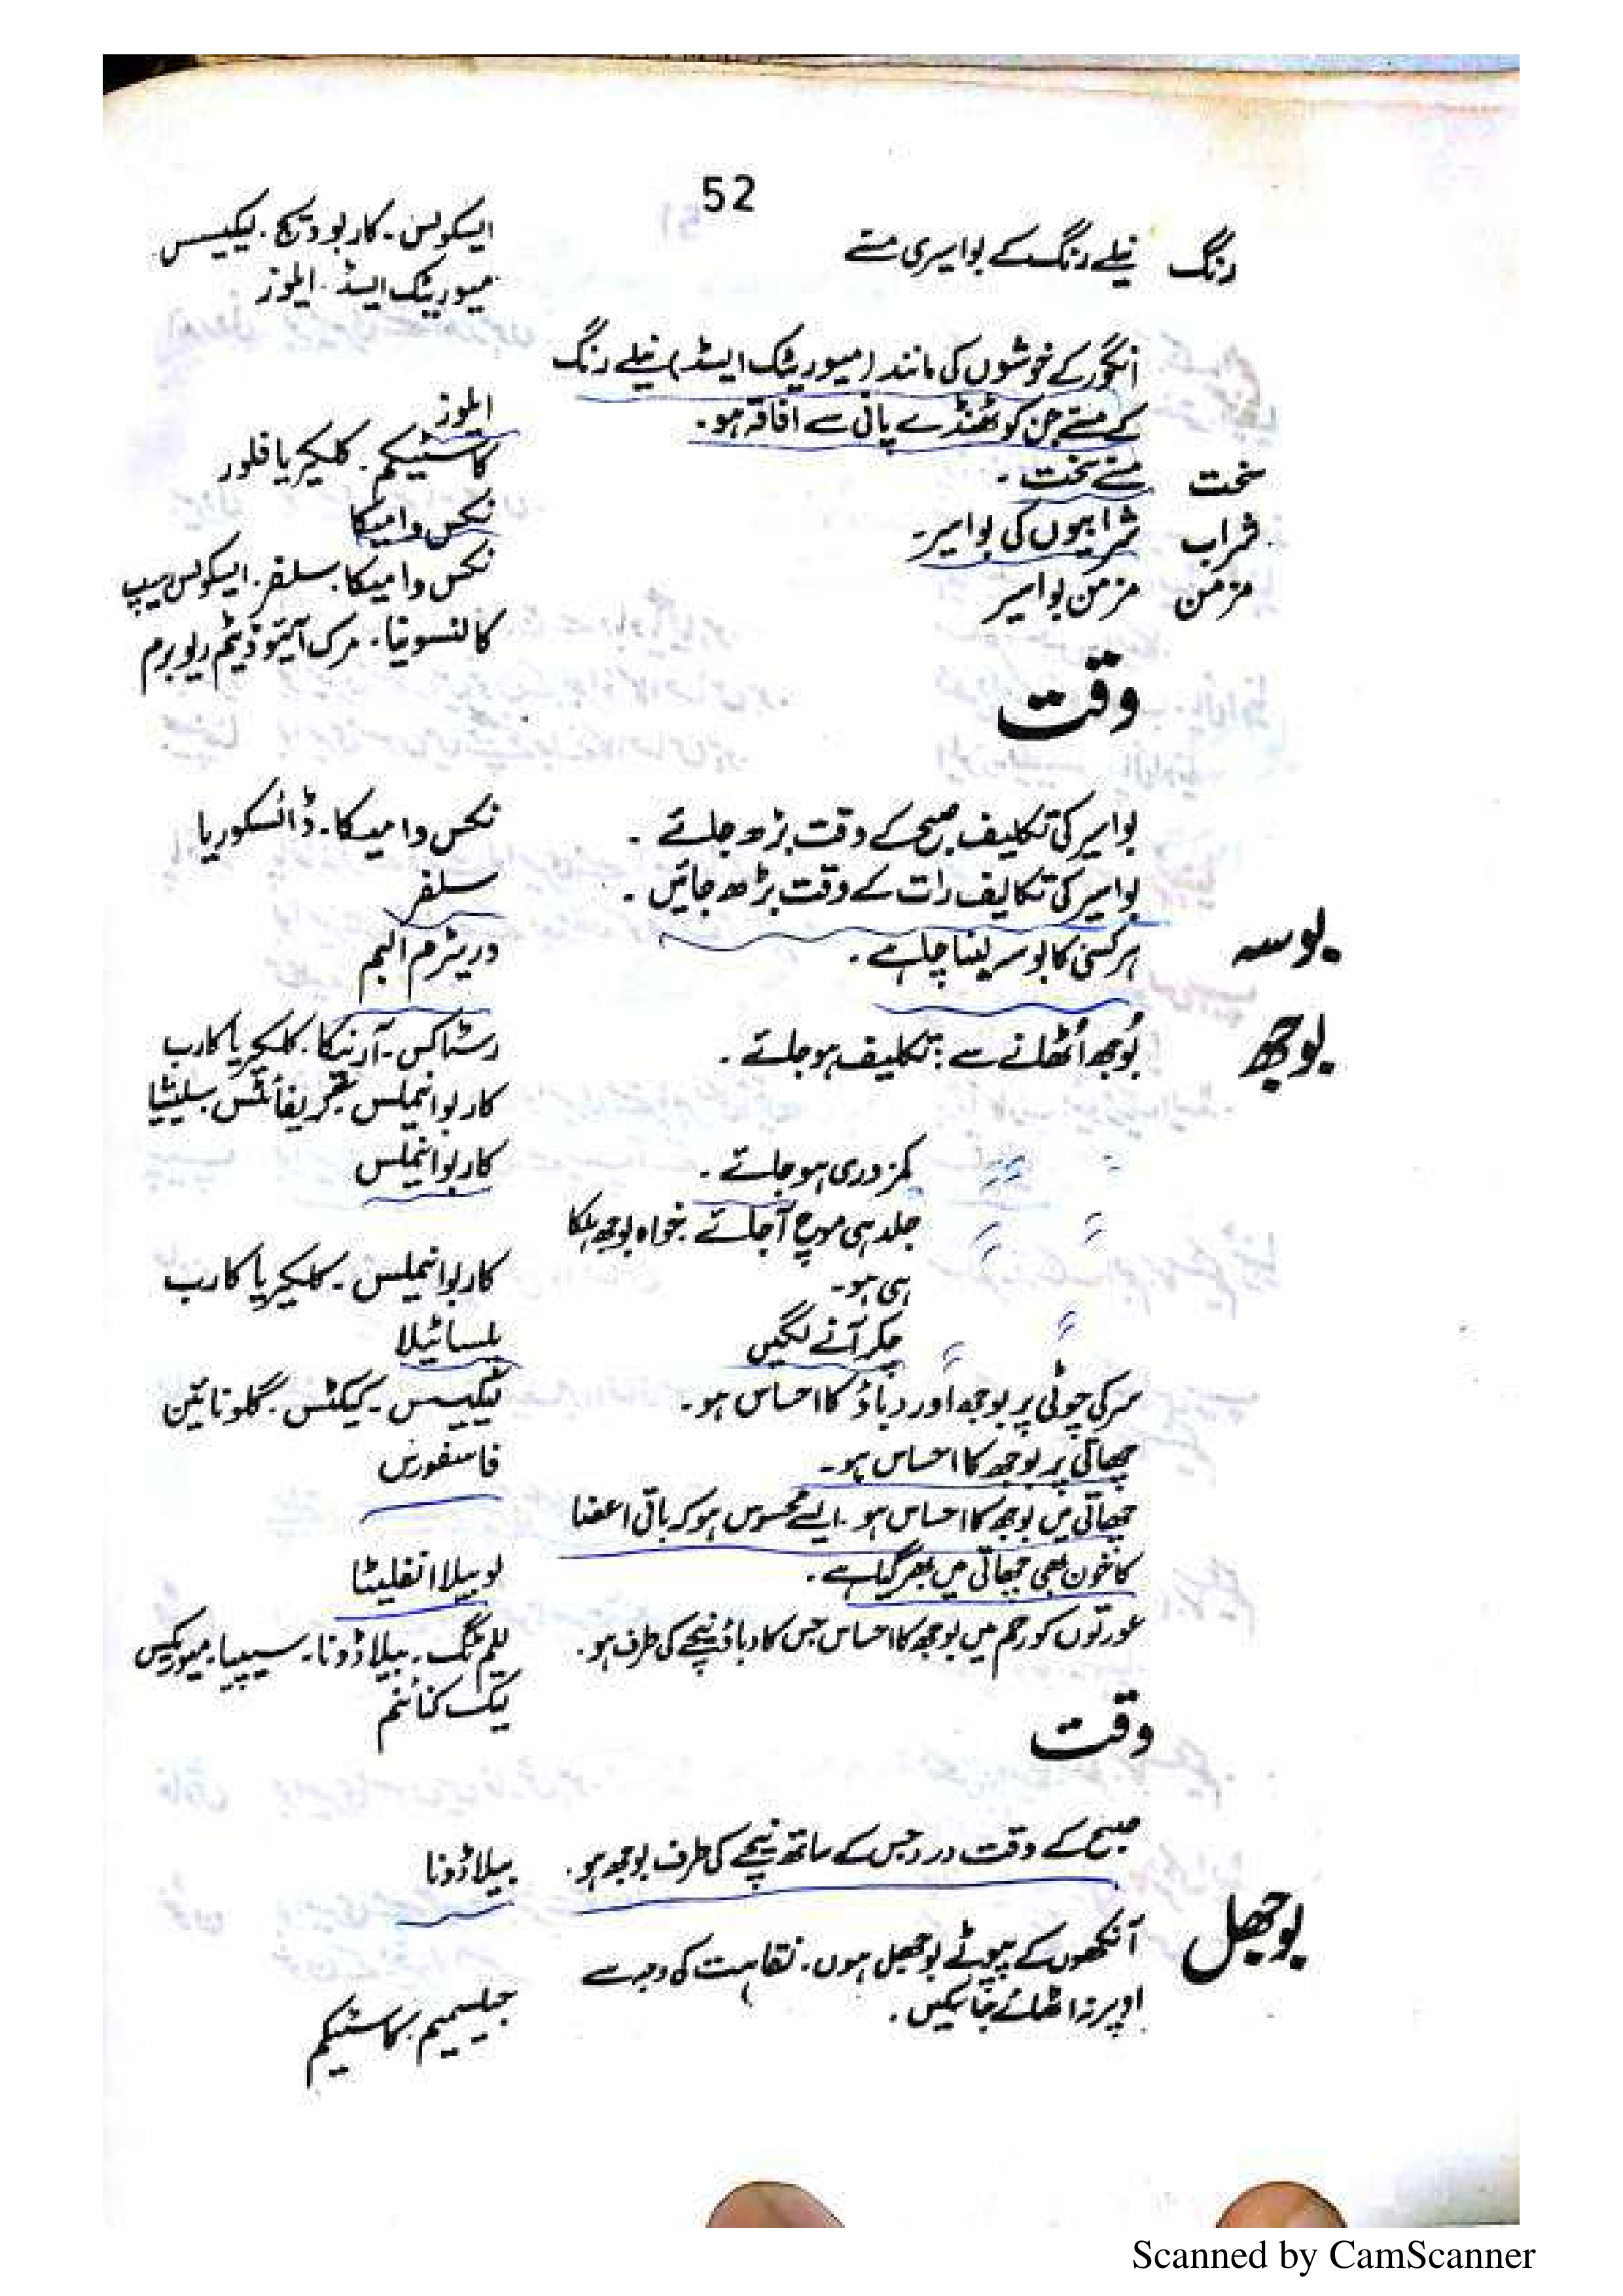 52
رنگ نیلے رنگ کے بواسیری مسّے ایسکولس۔ کاربوویج۔ لیکیسس
میوریٹک ایسڈ۔ ایلوز
انگور کے خوشوں کی مانند (میوریٹک ایسڈ) نیلے رنگ
کے مسّے جن کو ٹھنڈے پانی سے افاقہ ہو۔ ایلوز
سخت مسّے سخت۔ کاسٹیکم۔ کلیکریا فلور
شراب شرابیوں کی بواسیر۔ نکس وامیکا
مزمن مزمن بواسیر نکس وامیکا۔ سلفر۔ ایسکولس ہیپ
کالنسونیا۔ مرک آئیوڈیٹم ریوبرم
وقت
بواسیر کی تکلیف صبح کے وقت بڑھ جائے۔ نکس وامیکا۔ ڈائسکوریا
بواسیر کی تکالیف رات کے وقت بڑھ جائیں۔ سلفر
بوسہ ہر کسی کا بوسہ لینا چاہے۔ وریٹرم البم
بوجھ بوجھ اُٹھانے سے: تکلیف ہو جائے۔ رسٹاکس۔ آرنیکا۔ کلیکریا کارب
کاربوانیملس گریفائٹس سلیشیا
〃 〃 کمزوری ہو جائے۔ کاربوانیملس
〃 〃 جلد ہی موچ آ جائے خواہ بوجھ ہلکا
ہی ہو۔ کاربوانیملس۔ کلیکریا کارب
〃 〃 چکر آنے لگیں پلساٹیلا
سر کی چوٹی پر بوجھ اور دباؤ کا احساس ہو۔ لیکیسس۔ کیکٹس۔ گلونائین
چھاتی پر بوجھ کا احساس ہو۔ فاسفورس
چھاتی میں بوجھ کا احساس ہو۔ ایسے محسوس ہو کہ باقی اعضا
کا خون بھی چھاتی میں بھر گیا ہے۔ لوبیلا انفلیٹا
عورتوں کو رحم میں بوجھ کا احساس جس کا دباؤ نیچے کی طرف ہو۔ للیم ٹگ۔ بیلاڈونا۔ سیپیا۔ میوریکس
وقت
صبح کے وقت درد جس کے ساتھ نیچے کی طرف بوجھ ہو۔ بیلاڈونا
بوجھل آنکھوں کے پپوٹے بوجھل ہوں۔ نقاہت کی وجہ سے
اوپر نہ اٹھائے جا سکیں۔ جیلسیمیم۔ کاسٹیکم
Scanned by CamScanner